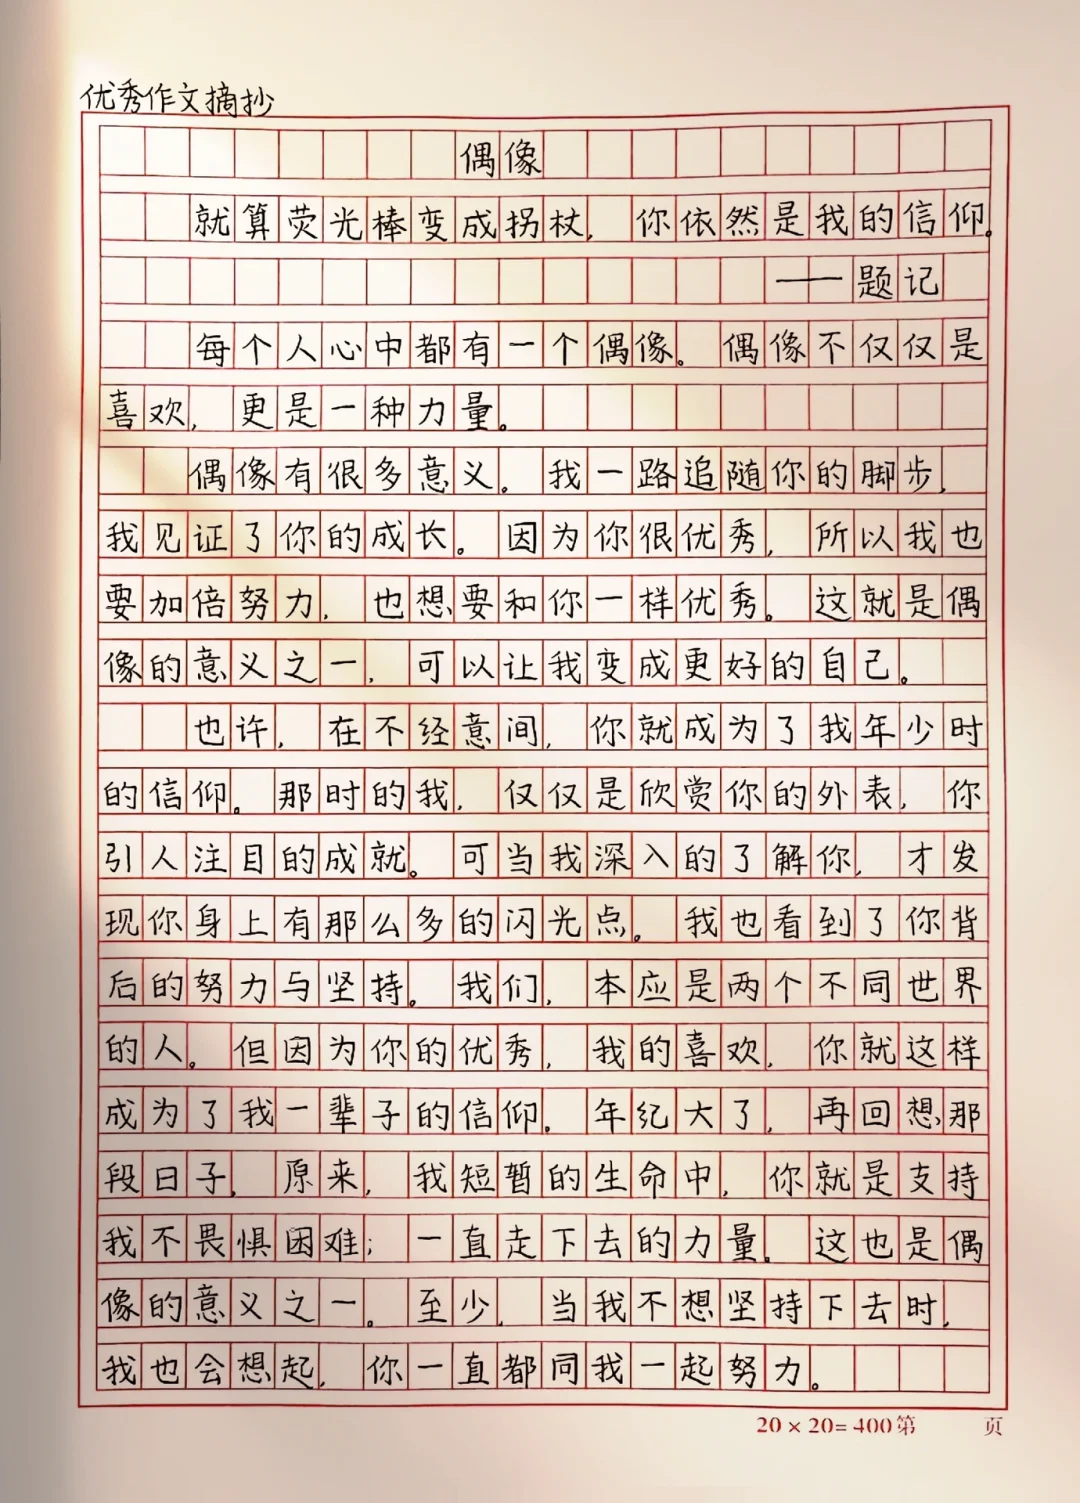 优秀作文摘抄
偶像
就算荧光棒变成拐杖，你依然是我的信仰。
——题记
每个人心中都有一个偶像。偶像不仅仅是
喜欢，更是一种力量。
偶像有很多意义。我一路追随你的脚步，
我见证了你的成长。因为你很优秀，所以我也
要加倍努力，也想要和你一样优秀。这就是偶
像的意义之一，可以让我变成更好的自己。
也许，在不经意间，你就成为了我年少时
的信仰。那时的我，仅仅是欣赏你的外表，你
引人注目的成就。可当我深入的了解你，才发
现你身上有那么多的闪光点。我也看到了你背
后的努力与坚持。我们，本应是两个不同世界
的人。但因为你的优秀，我的喜欢，你就这样
成为了我一辈子的信仰。年纪大了，再回想那
段日子，原来，我短暂的生命中，你就是支持
我不畏惧困难；一直走下去的力量。这也是偶
像的意义之一。至少，当我不想坚持下去时，
我也会想起，你一直都同我一起努力。
20×20=400第 页